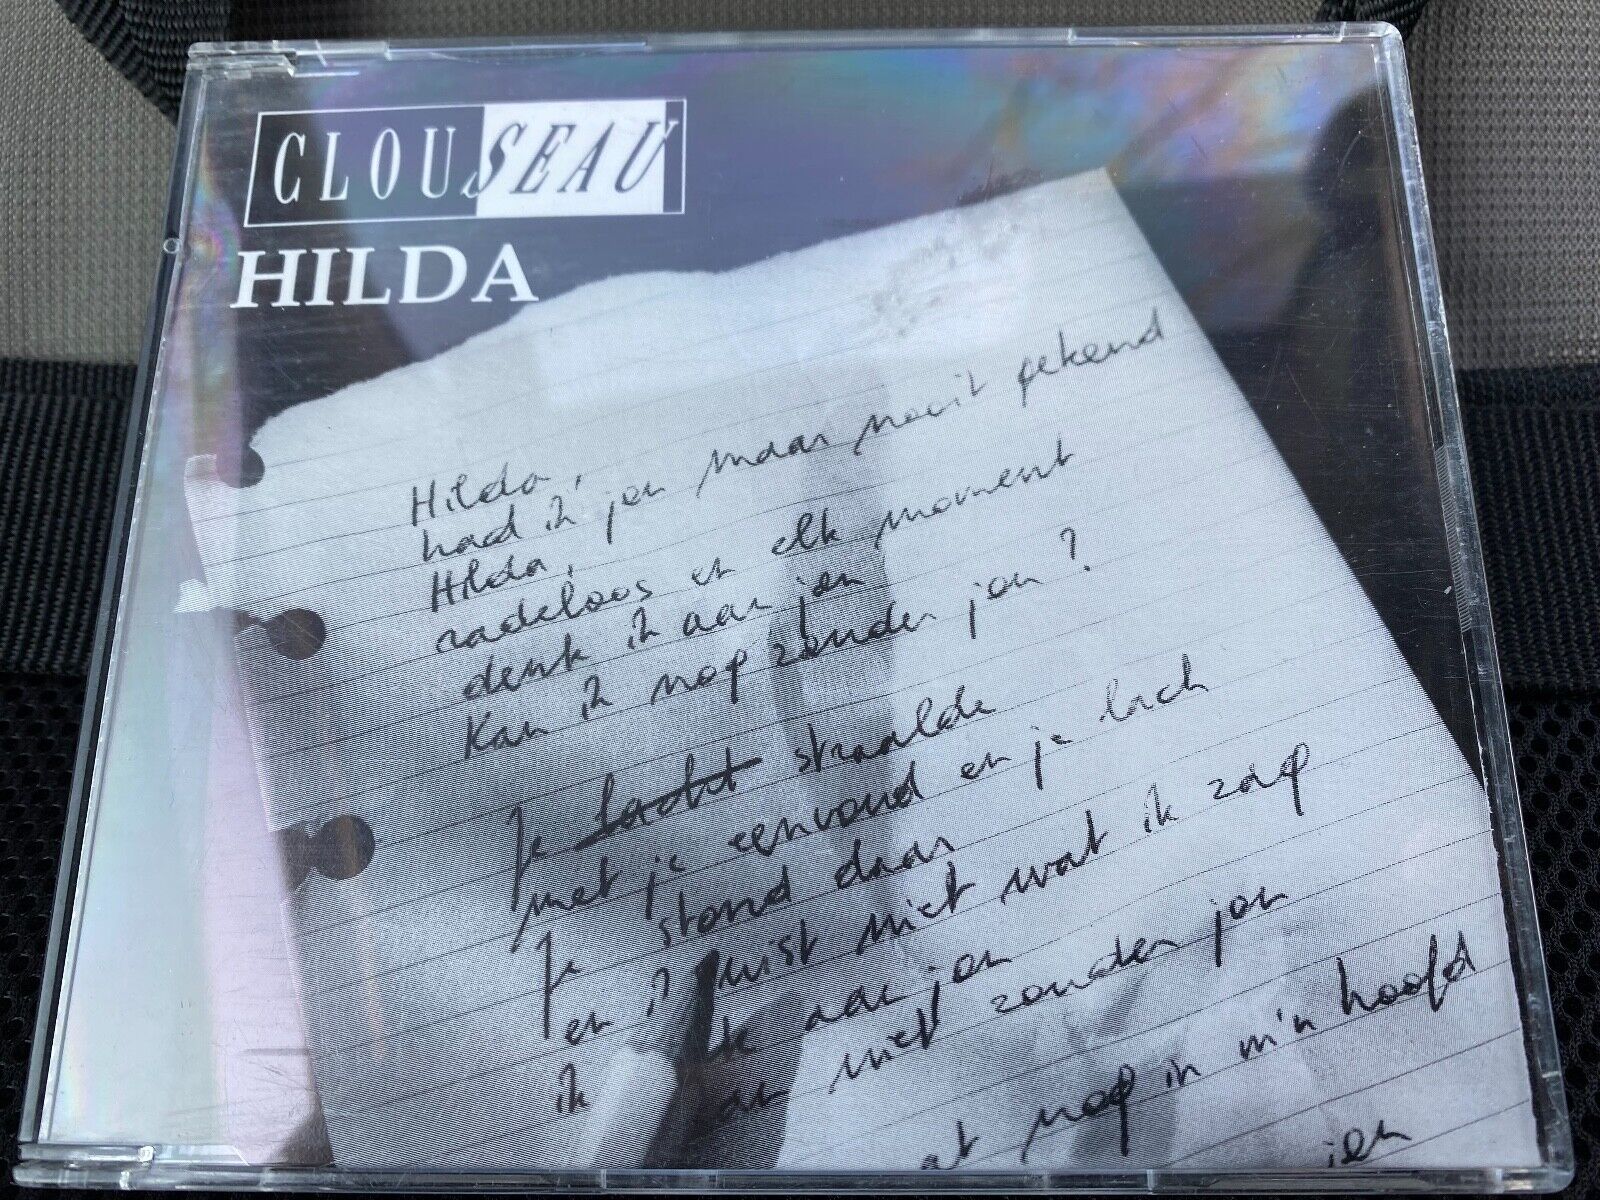 CLOUSEAU
HILDA
Hilda,
had ik jou maar nooit gekend
Hilda,
radeloos en elk moment
denk ik aan jou
Kan ik nog zonder jou?
Je lacht straalde
met je eenvoud en je lach
Je stond daar
en ik wist niet wat ik zag
ik aan jou
niet zonder jou
at nog in m'n hoofd